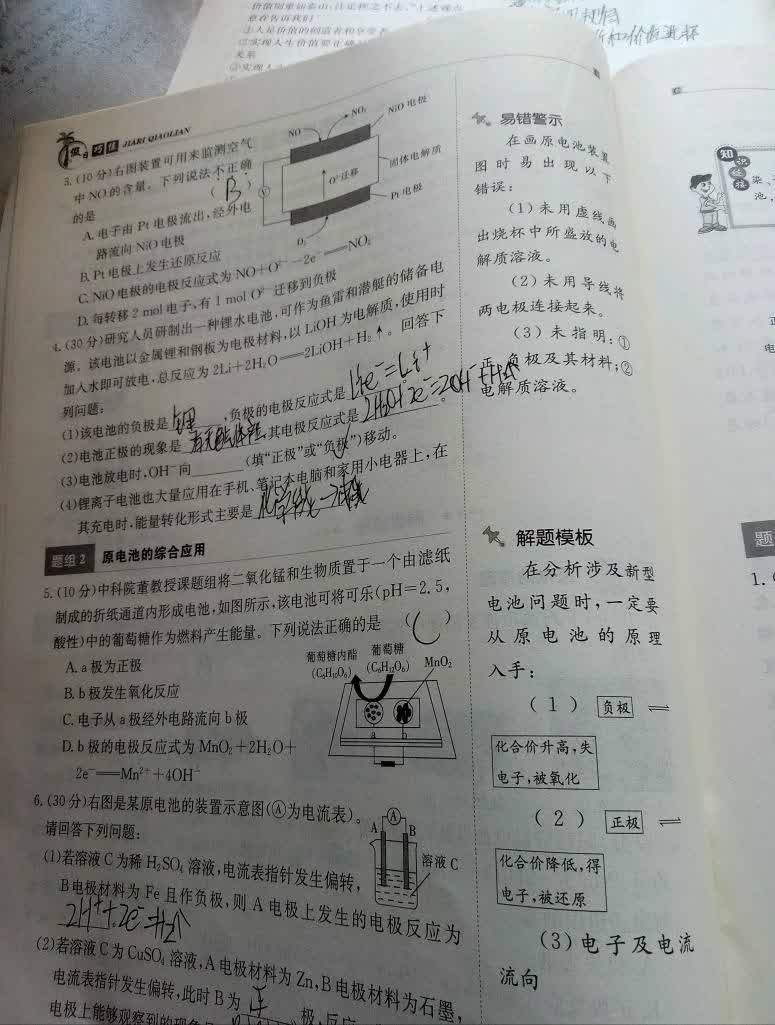 意在告诉我们
关系
假日巧练 JIARI QIAOLIAN
3.(10分)右图装置可用来监测空气
中NO的含量。下列说法不正确
的是 ( B )
A.电子由Pt电极流出,经外电
路流向NiO电极
B.Pt电极上发生还原反应
C.NiO电极的电极反应式为NO+O²⁻-2e⁻══NO₂
D.每转移2 mol电子,有1 mol O²⁻迁移到负极
NO
NO₂
NiO电极
固体电解质
O²⁻迁移
Pt电极
O₂
V
4.(30分)研究人员研制出一种锂水电池,可作为鱼雷和潜艇的储备电
源。该电池以金属锂和钢板为电极材料,以LiOH为电解质,使用时
加入水即可放电,总反应为2Li+2H₂O══2LiOH+H₂↑。回答下
列问题:
(1)该电池的负极是 锂 ,负极的电极反应式是 Li-e⁻=Li⁺ 。
(2)电池正极的现象是 ,其电极反应式是 2H₂O+2e⁻=2OH⁻+H₂↑ 。
(3)电池放电时,OH⁻向 (填“正极”或“负极”)移动。
(4)锂离子电池也大量应用在手机、笔记本电脑和家用小电器上,在
其充电时,能量转化形式主要是
题组2 原电池的综合应用
5.(10分)中科院董教授课题组将二氧化锰和生物质置于一个由滤纸
制成的折纸通道内形成电池,如图所示,该电池可将可乐(pH=2.5,
酸性)中的葡萄糖作为燃料产生能量。下列说法正确的是 ( C )
A.a极为正极
B.b极发生氧化反应
C.电子从a极经外电路流向b极
D.b极的电极反应式为MnO₂+2H₂O+
2e⁻══Mn²⁺+4OH⁻
葡萄糖内酯 葡萄糖
(C₆H₁₀O₆) (C₆H₁₂O₆) MnO₂
a b
6.(30分)右图是某原电池的装置示意图(Ⓐ为电流表)。
请回答下列问题:
(1)若溶液C为稀H₂SO₄溶液,电流表指针发生偏转,
B电极材料为Fe且作负极,则A电极上发生的电极反应为
2H⁺+2e⁻=H₂↑
(2)若溶液C为CuSO₄溶液,A电极材料为Zn,B电极材料为石墨,
电流表指针发生偏转,此时B为 正 极,反应
电极上能够观察到的现象
A
A B
溶液C
易错警示
在画原电池装置
图时易出现以下
错误:
(1)未用虚线画
出烧杯中所盛放的电
解质溶液。
(2)未用导线将
两电极连接起来。
(3)未指明:①
正、负极及其材料;②
电解质溶液。
解题模板
在分析涉及新型
电池问题时,一定要
从原电池的原理
入手:
(1) 负极 ⇌
化合价升高,失
电子,被氧化
(2) 正极 ⇌
化合价降低,得
电子,被还原
(3)电子及电流
流向
知识链接
染、
池,
电
题
1.(